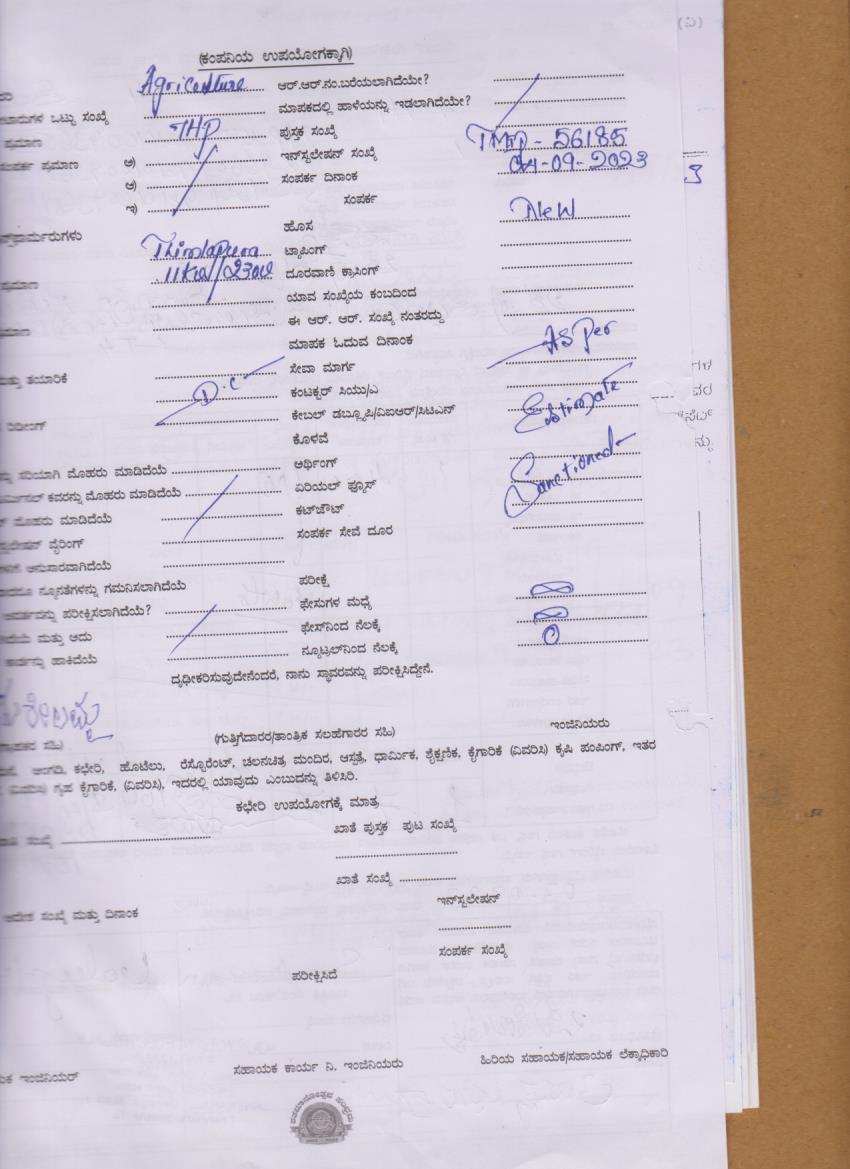 (ಪಿ)
(ಕಂಪನಿಯ ಉಪಯೋಗಕ್ಕಾಗಿ)
Agriculture ಆರ್.ಆರ್.ನಂ.ಬರೆಯಲಾಗಿದೆಯೇ?
ಒಟ್ಟು ಸಂಖ್ಯೆ ಮಾಪಕದಲ್ಲಿ ಹಾಳೆಯನ್ನು ಇಡಲಾಗಿದೆಯೇ?
ಪ್ರಮಾಣ THP ಪುಸ್ತಕ ಸಂಖ್ಯೆ
ಸಂಪರ್ಕ ಪ್ರಮಾಣ ಅ) ಇನ್‌ಸ್ಟಲೇಷನ್ ಸಂಖ್ಯೆ 56185
ಆ) ಸಂಪರ್ಕ ದಿನಾಂಕ 04-09-2023
ಇ) ಸಂಪರ್ಕ
ಹೊಸ New
Thimlapura ಟ್ಯಾಪಿಂಗ್
11KV/230V ದೂರವಾಣಿ ಕ್ರಾಸಿಂಗ್
ಯಾವ ಸಂಖ್ಯೆಯ ಕಂಬದಿಂದ
ಈ ಆರ್. ಆರ್. ಸಂಖ್ಯೆ ನಂತರದ್ದು
ಮಾಪಕ ಓದುವ ದಿನಾಂಕ As per
ಮತ್ತು ತಯಾರಿಕೆ ಸೇವಾ ಮಾರ್ಗ
D.C ಕಂಟಕ್ಟರ್ ಸಿಯು/ಎ
ರಿಡಿಂಗ್ ಕೇಬಲ್ ಡಬ್ಲ್ಯೂಪಿ/ವಿಐಆರ್/ಸಿಟಿಎನ್ Estimate
ಕೊಳವೆ
ಸರಿಯಾಗಿ ಮೊಹರು ಮಾಡಿದೆಯೆ ಅರ್ಥಿಂಗ್ Sanctioned
ಕವರನ್ನು ಮೊಹರು ಮಾಡಿದೆಯೆ ಏರಿಯಲ್ ಫ್ಯೂಸ್
ಮೊಹರು ಮಾಡಿದೆಯೆ ಕಟ್‌ಔಟ್
ವೈರಿಂಗ್ ಸಂಪರ್ಕ ಸೇವೆ ದೂರ
ಅನುಸಾರವಾಗಿದೆಯೆ
ನ್ಯೂನತೆಗಳನ್ನು ಗಮನಿಸಲಾಗಿದೆಯೆ ಪರೀಕ್ಷೆ
ಪರೀಕ್ಷಿಸಲಾಗಿದೆಯೆ? ಫೇಸುಗಳ ಮಧ್ಯೆ
ಮತ್ತು ಅದು ಫೇಸ್‌ನಿಂದ ನೆಲಕ್ಕೆ
ಹಾಕಿದೆಯೆ ನ್ಯೂಟ್ರಲ್‌ನಿಂದ ನೆಲಕ್ಕೆ
ದೃಢೀಕರಿಸುವುದೇನೆಂದರೆ, ನಾನು ಸ್ಥಾವರವನ್ನು ಪರೀಕ್ಷಿಸಿದ್ದೇನೆ.
ಸಹಿ) (ಗುತ್ತಿಗೆದಾರರ/ತಾಂತ್ರಿಕ ಸಲಹೆಗಾರರ ಸಹಿ) ಇಂಜಿನಿಯರು
ಅಂಗಡಿ, ಕಛೇರಿ, ಹೊಟೆಲು, ರೆಸ್ಟೊರೆಂಟ್, ಚಲನಚಿತ್ರ ಮಂದಿರ, ಆಸ್ಪತ್ರೆ, ಧಾರ್ಮಿಕ, ಶೈಕ್ಷಣಿಕ, ಕೈಗಾರಿಕೆ (ವಿವರಿಸಿ) ಕೃಷಿ ಪಂಪಿಂಗ್, ಇತರ
ಗೃಹ ಕೈಗಾರಿಕೆ, (ವಿವರಿಸಿ), ಇದರಲ್ಲಿ ಯಾವುದು ಎಂಬುದನ್ನು ತಿಳಿಸಿರಿ.
ಕಛೇರಿ ಉಪಯೋಗಕ್ಕೆ ಮಾತ್ರ
ಸಂಖ್ಯೆ ಖಾತೆ ಪುಸ್ತಕ ಪುಟ ಸಂಖ್ಯೆ
ಖಾತೆ ಸಂಖ್ಯೆ
ಆದೇಶ ಸಂಖ್ಯೆ ಮತ್ತು ದಿನಾಂಕ ಇನ್‌ಸ್ಟಲೇಷನ್
ಸಂಪರ್ಕ ಸಂಖ್ಯೆ
ಪರೀಕ್ಷಿಸಿದೆ
ಇಂಜಿನಿಯರ್ ಸಹಾಯಕ ಕಾರ್ಯ ನಿ. ಇಂಜಿನಿಯರು ಹಿರಿಯ ಸಹಾಯಕ/ಸಹಾಯಕ ಲೆಕ್ಕಾಧಿಕಾರಿ